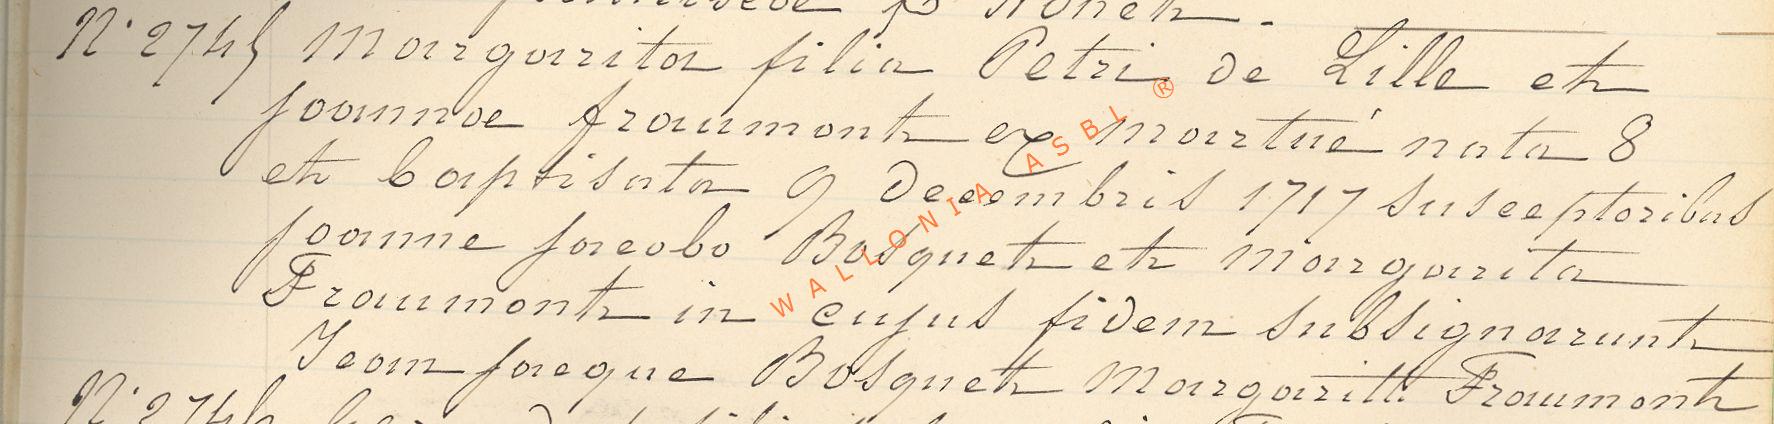 Nonet.
N° 2745 Margarita filia Petri de Lille et
joannae fraumont ex Martué nata 8
et baptisata 9 Decembris 1717 susceptoribus
joanne jacobo Bosquet et Margarita
Fraumont in cujus fidem subsignarunt
Jean jacque Bosquet Margaritte Fraumont
N° 2746
WALLONIA ASBL ®